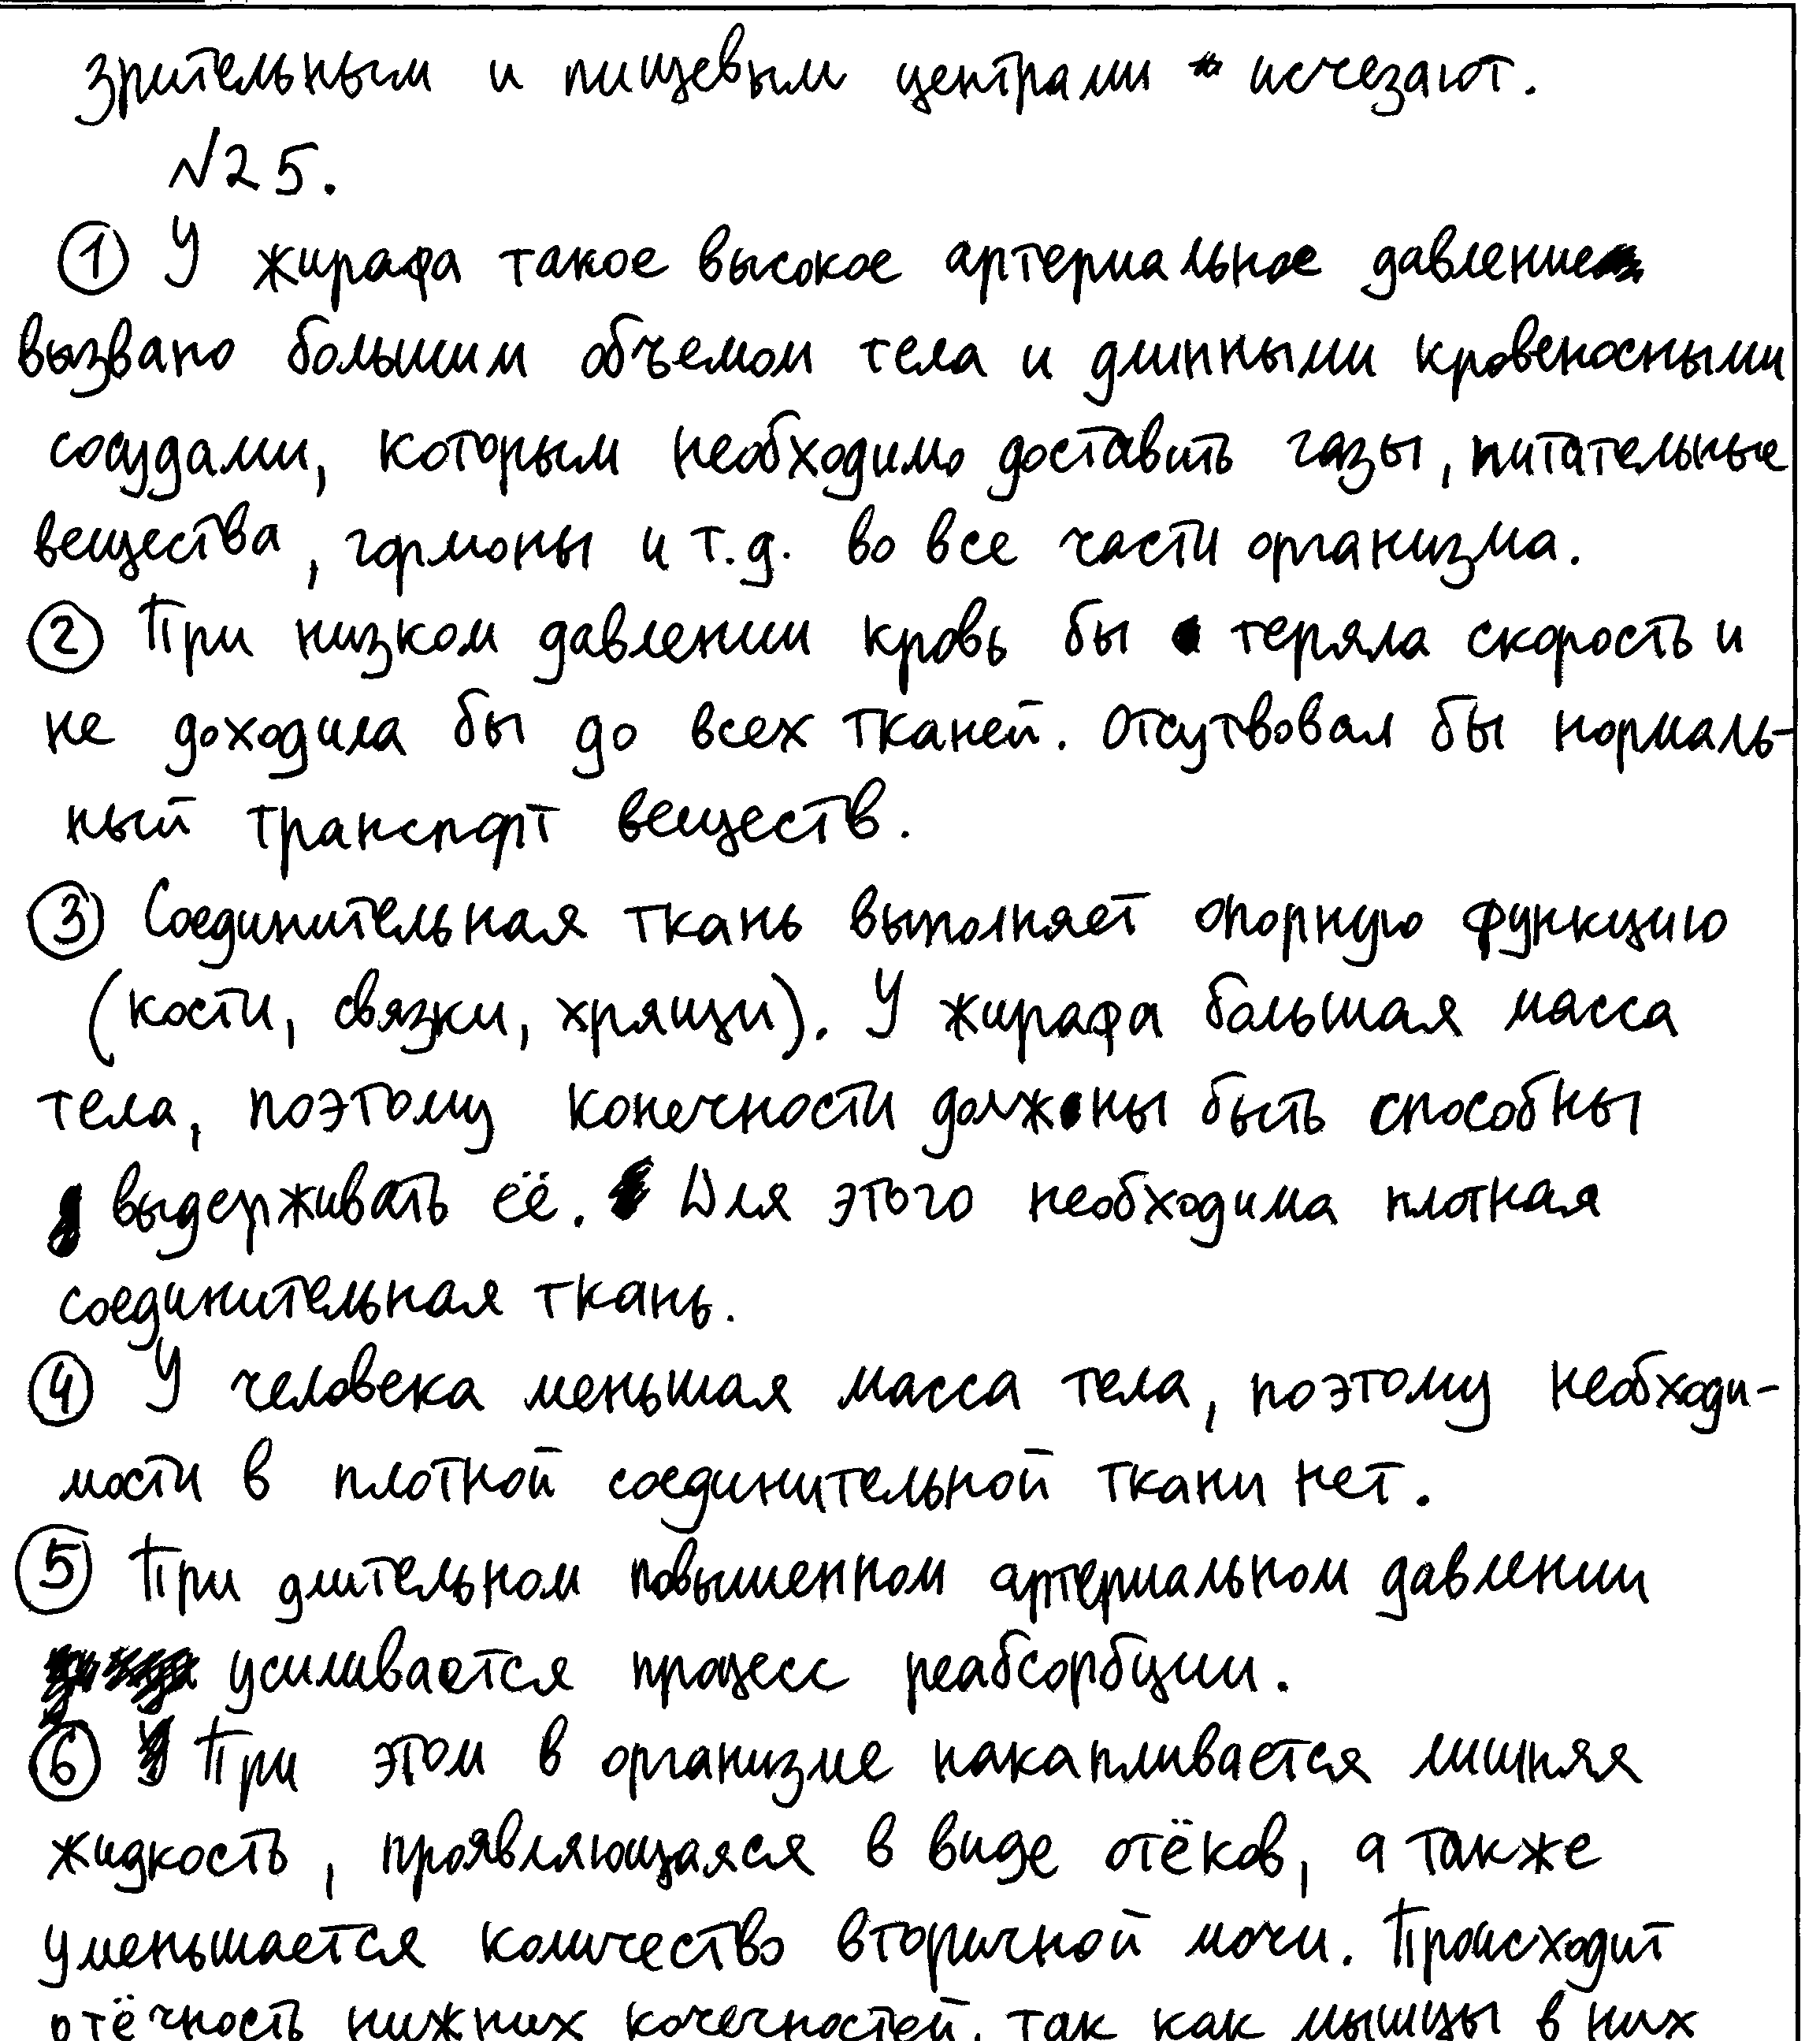 зрительным и пищевым центрами исчезают.
№25.
① У жирафа такое высокое артериальное давление
вызвано большим объемом тела и длинными кровеносными
сосудами, которым необходимо доставить газы, питательные
вещества, гормоны и т.д. во все части организма.
② При низком давлении кровь бы теряла скорость и
не доходила бы до всех тканей. Отсутвовал бы нормаль-
ный транспорт веществ.
③ Соединительная ткань выполняет опорную функцию
(кости, связки, хрящи). У жирафа большая масса
тела, поэтому конечности должны быть способны
выдерживать её. Для этого необходима плотная
соединительная ткань.
④ У человека меньшая масса тела, поэтому необходи-
мости в плотной соединительной ткани нет.
⑤ При длительном повышенном артериальном давлении
усиливается процесс реабсорбции.
⑥ При этом в организме накапливается лишняя
жидкость, проявляющаяся в виде отёков, а также
уменьшается количество вторичной мочи. Происходит
отёчность нижних конечностей, так как мышцы в них